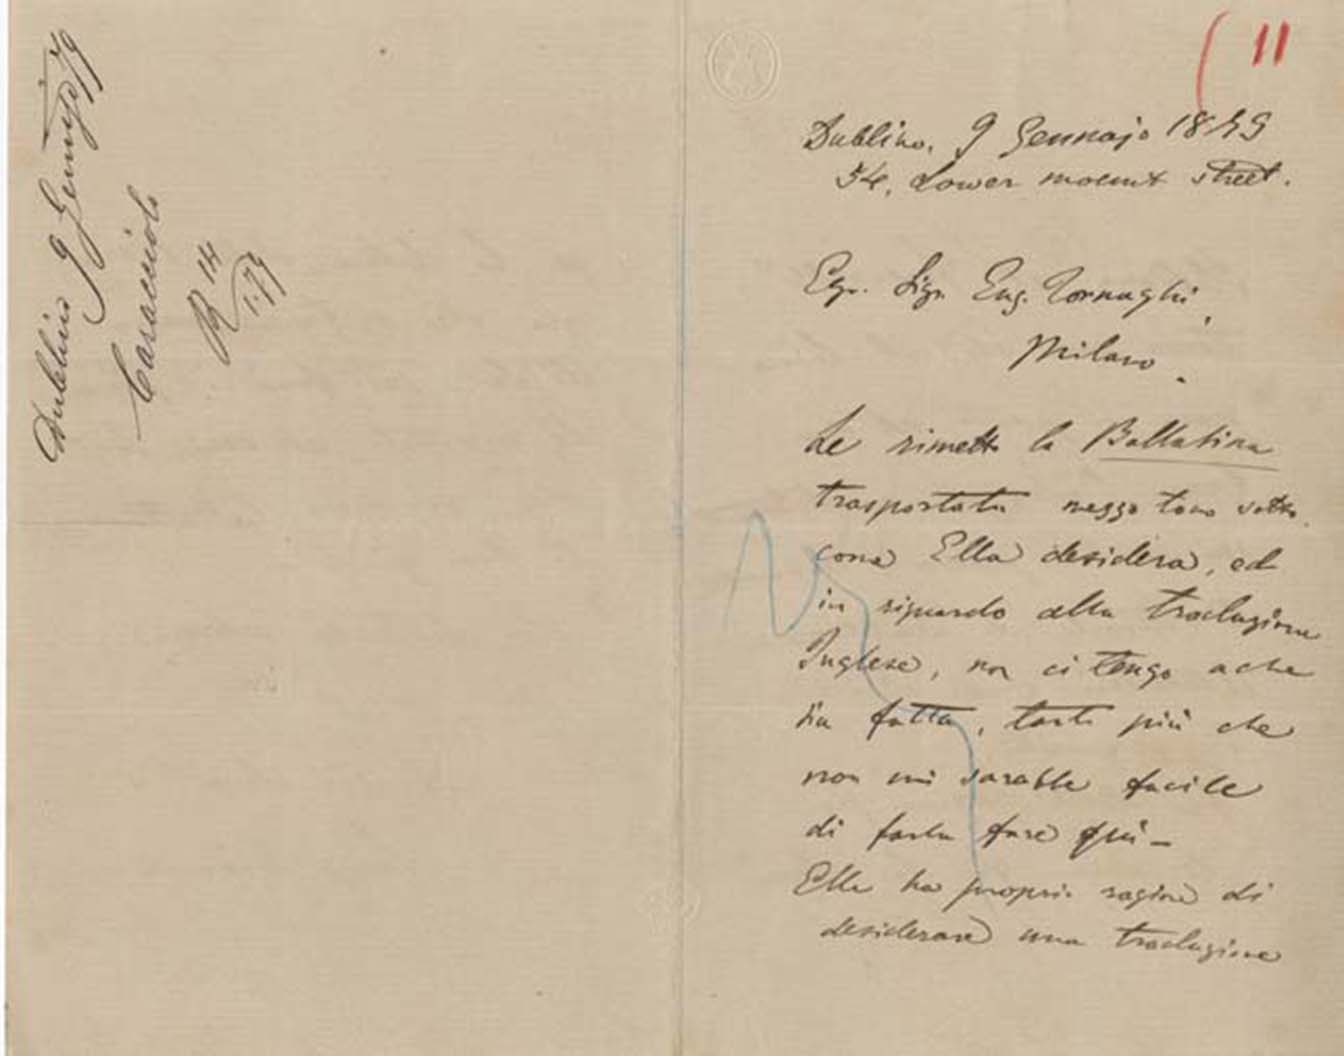 Dublino 9 Gennajo 79
Caracciolo
R 14
1.79
11
Dublino, 9 Gennajo 1879
54, Lower mount street.
Egr. Sigr. Eug. Tornaghi,
Milano.
Le rimetto la Ballatina
trasportata mezzo tono sotto
come Ella desidera, ed
in riguardo alla traduzione
Inglese, non ci tengo a che
sia fatta, tanto più che
non mi sarebbe facile
di farla fare quì –
Ella ha proprio ragione di
desiderare una traduzione